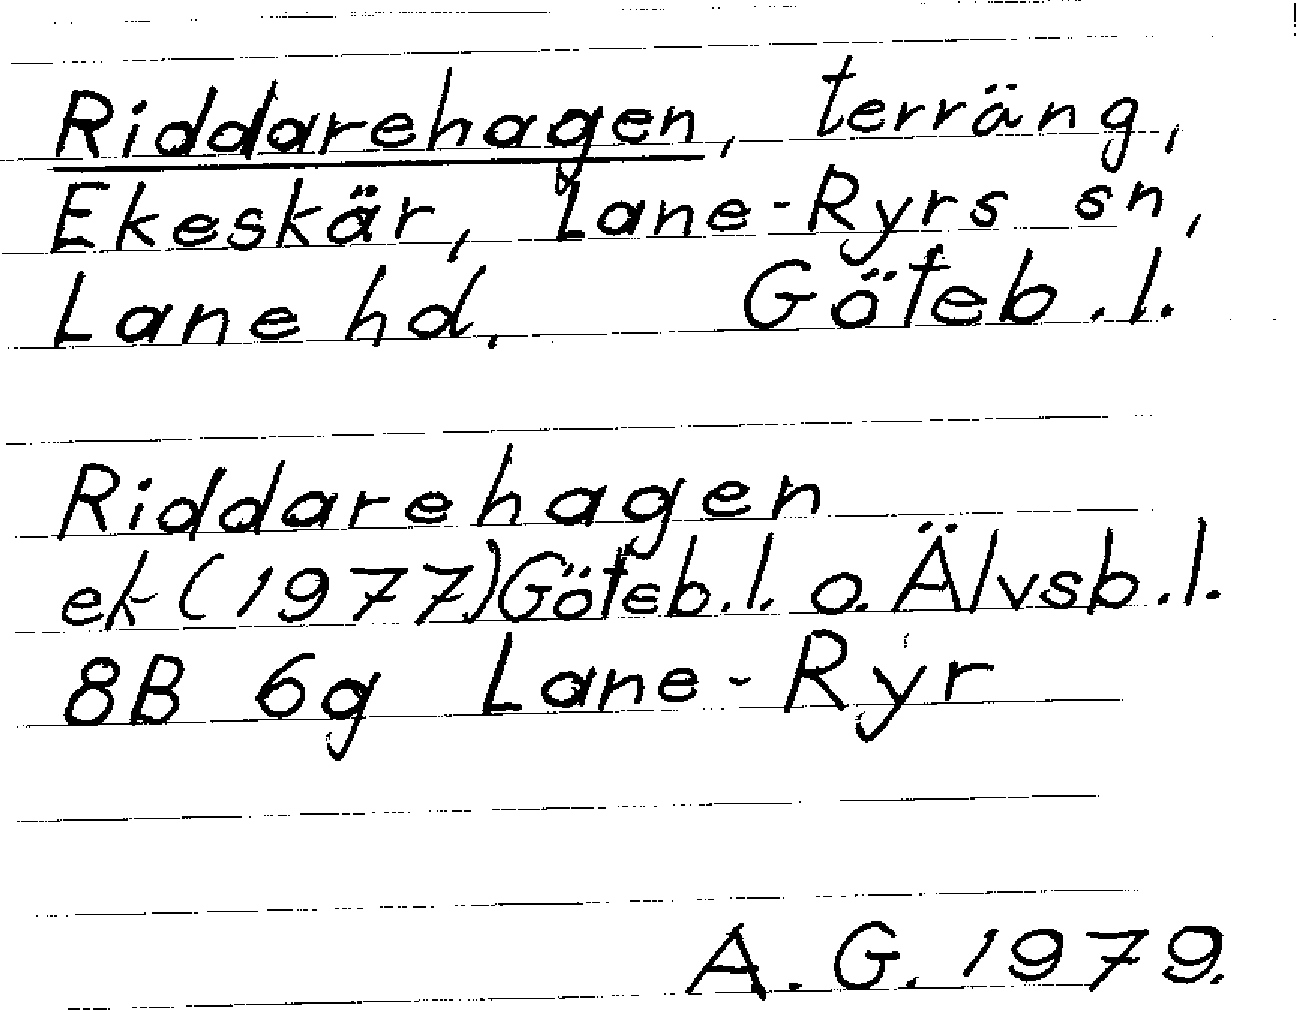 Riddarehagen, terräng,
Ekeskär, Lane-Ryrs sn,
Lane hd. Göteb.l.
Riddarehagen
ek (1977) Göteb.l. o. Älvsb.l.
8B 6g Lane-Ryr
A.G. 1979.